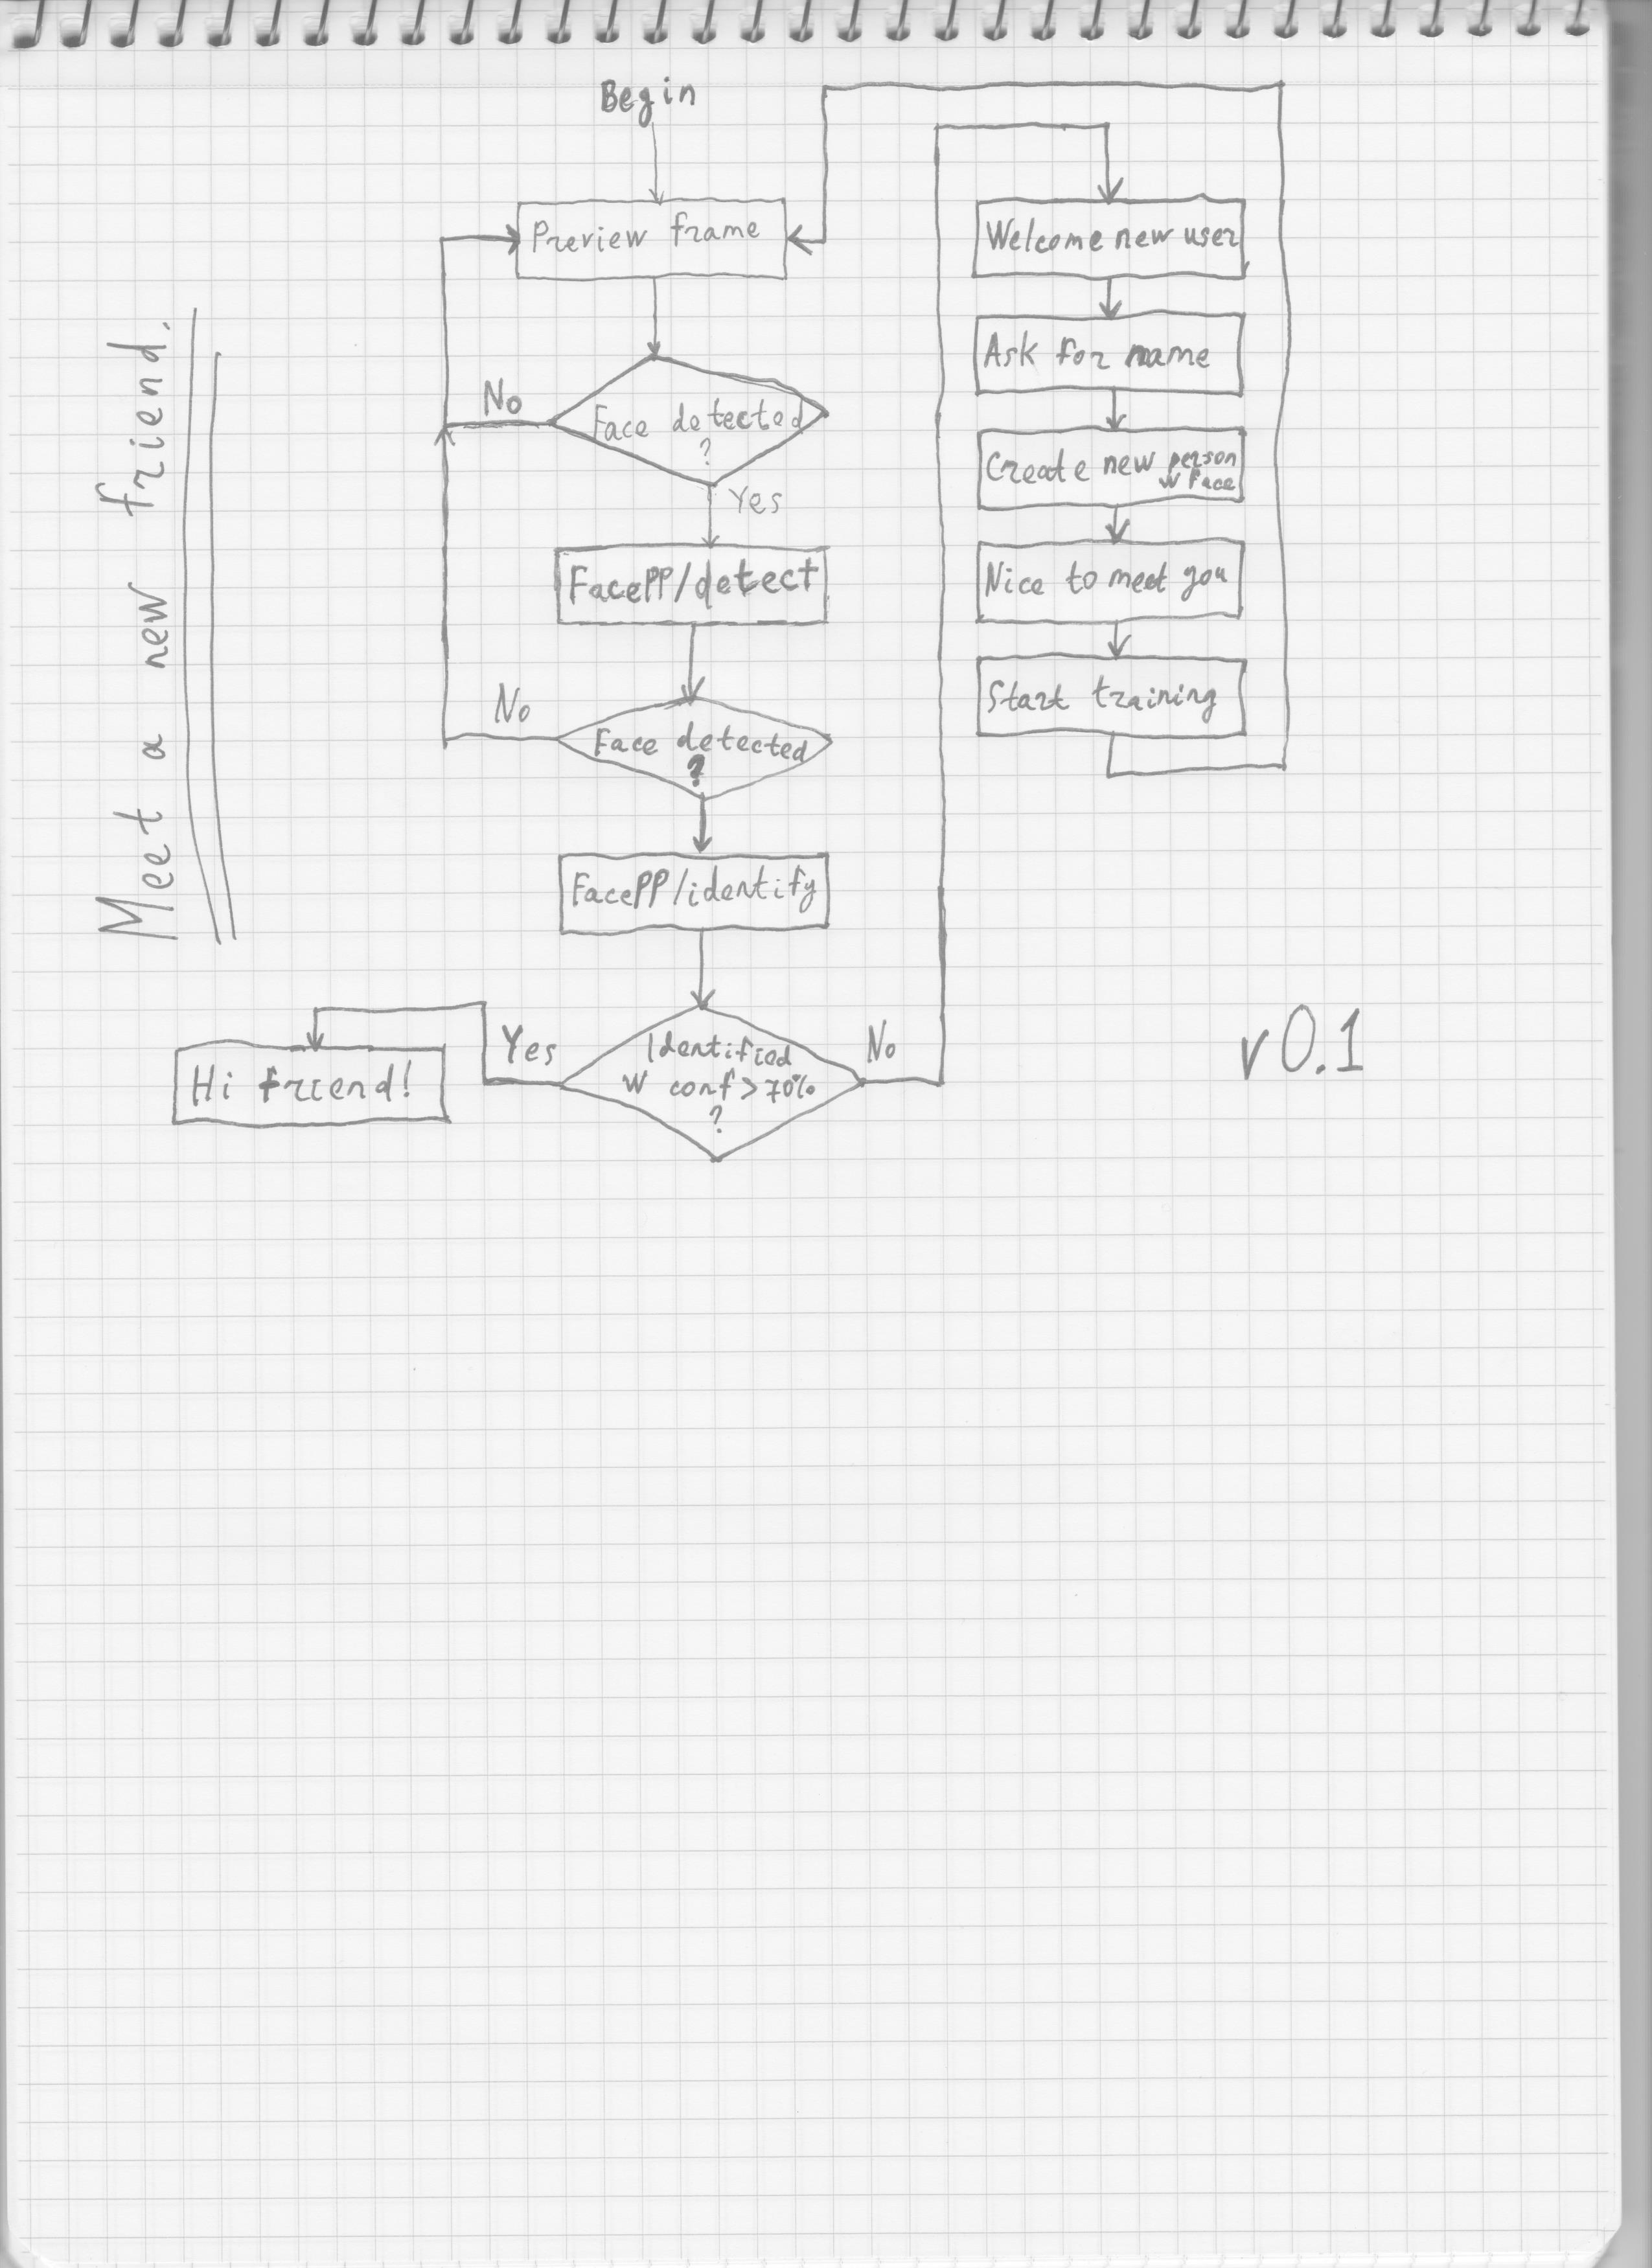 Meet a new friend.
Begin
Preview frame
No
Face detected
?
Yes
FacePP/detect
No
Face detected
?
FacePP/identify
Yes
Identified
w conf > 70%
?
No
Hi friend!
Welcome new user
Ask for name
Create new person
w face
Nice to meet you
Start training
v 0.1